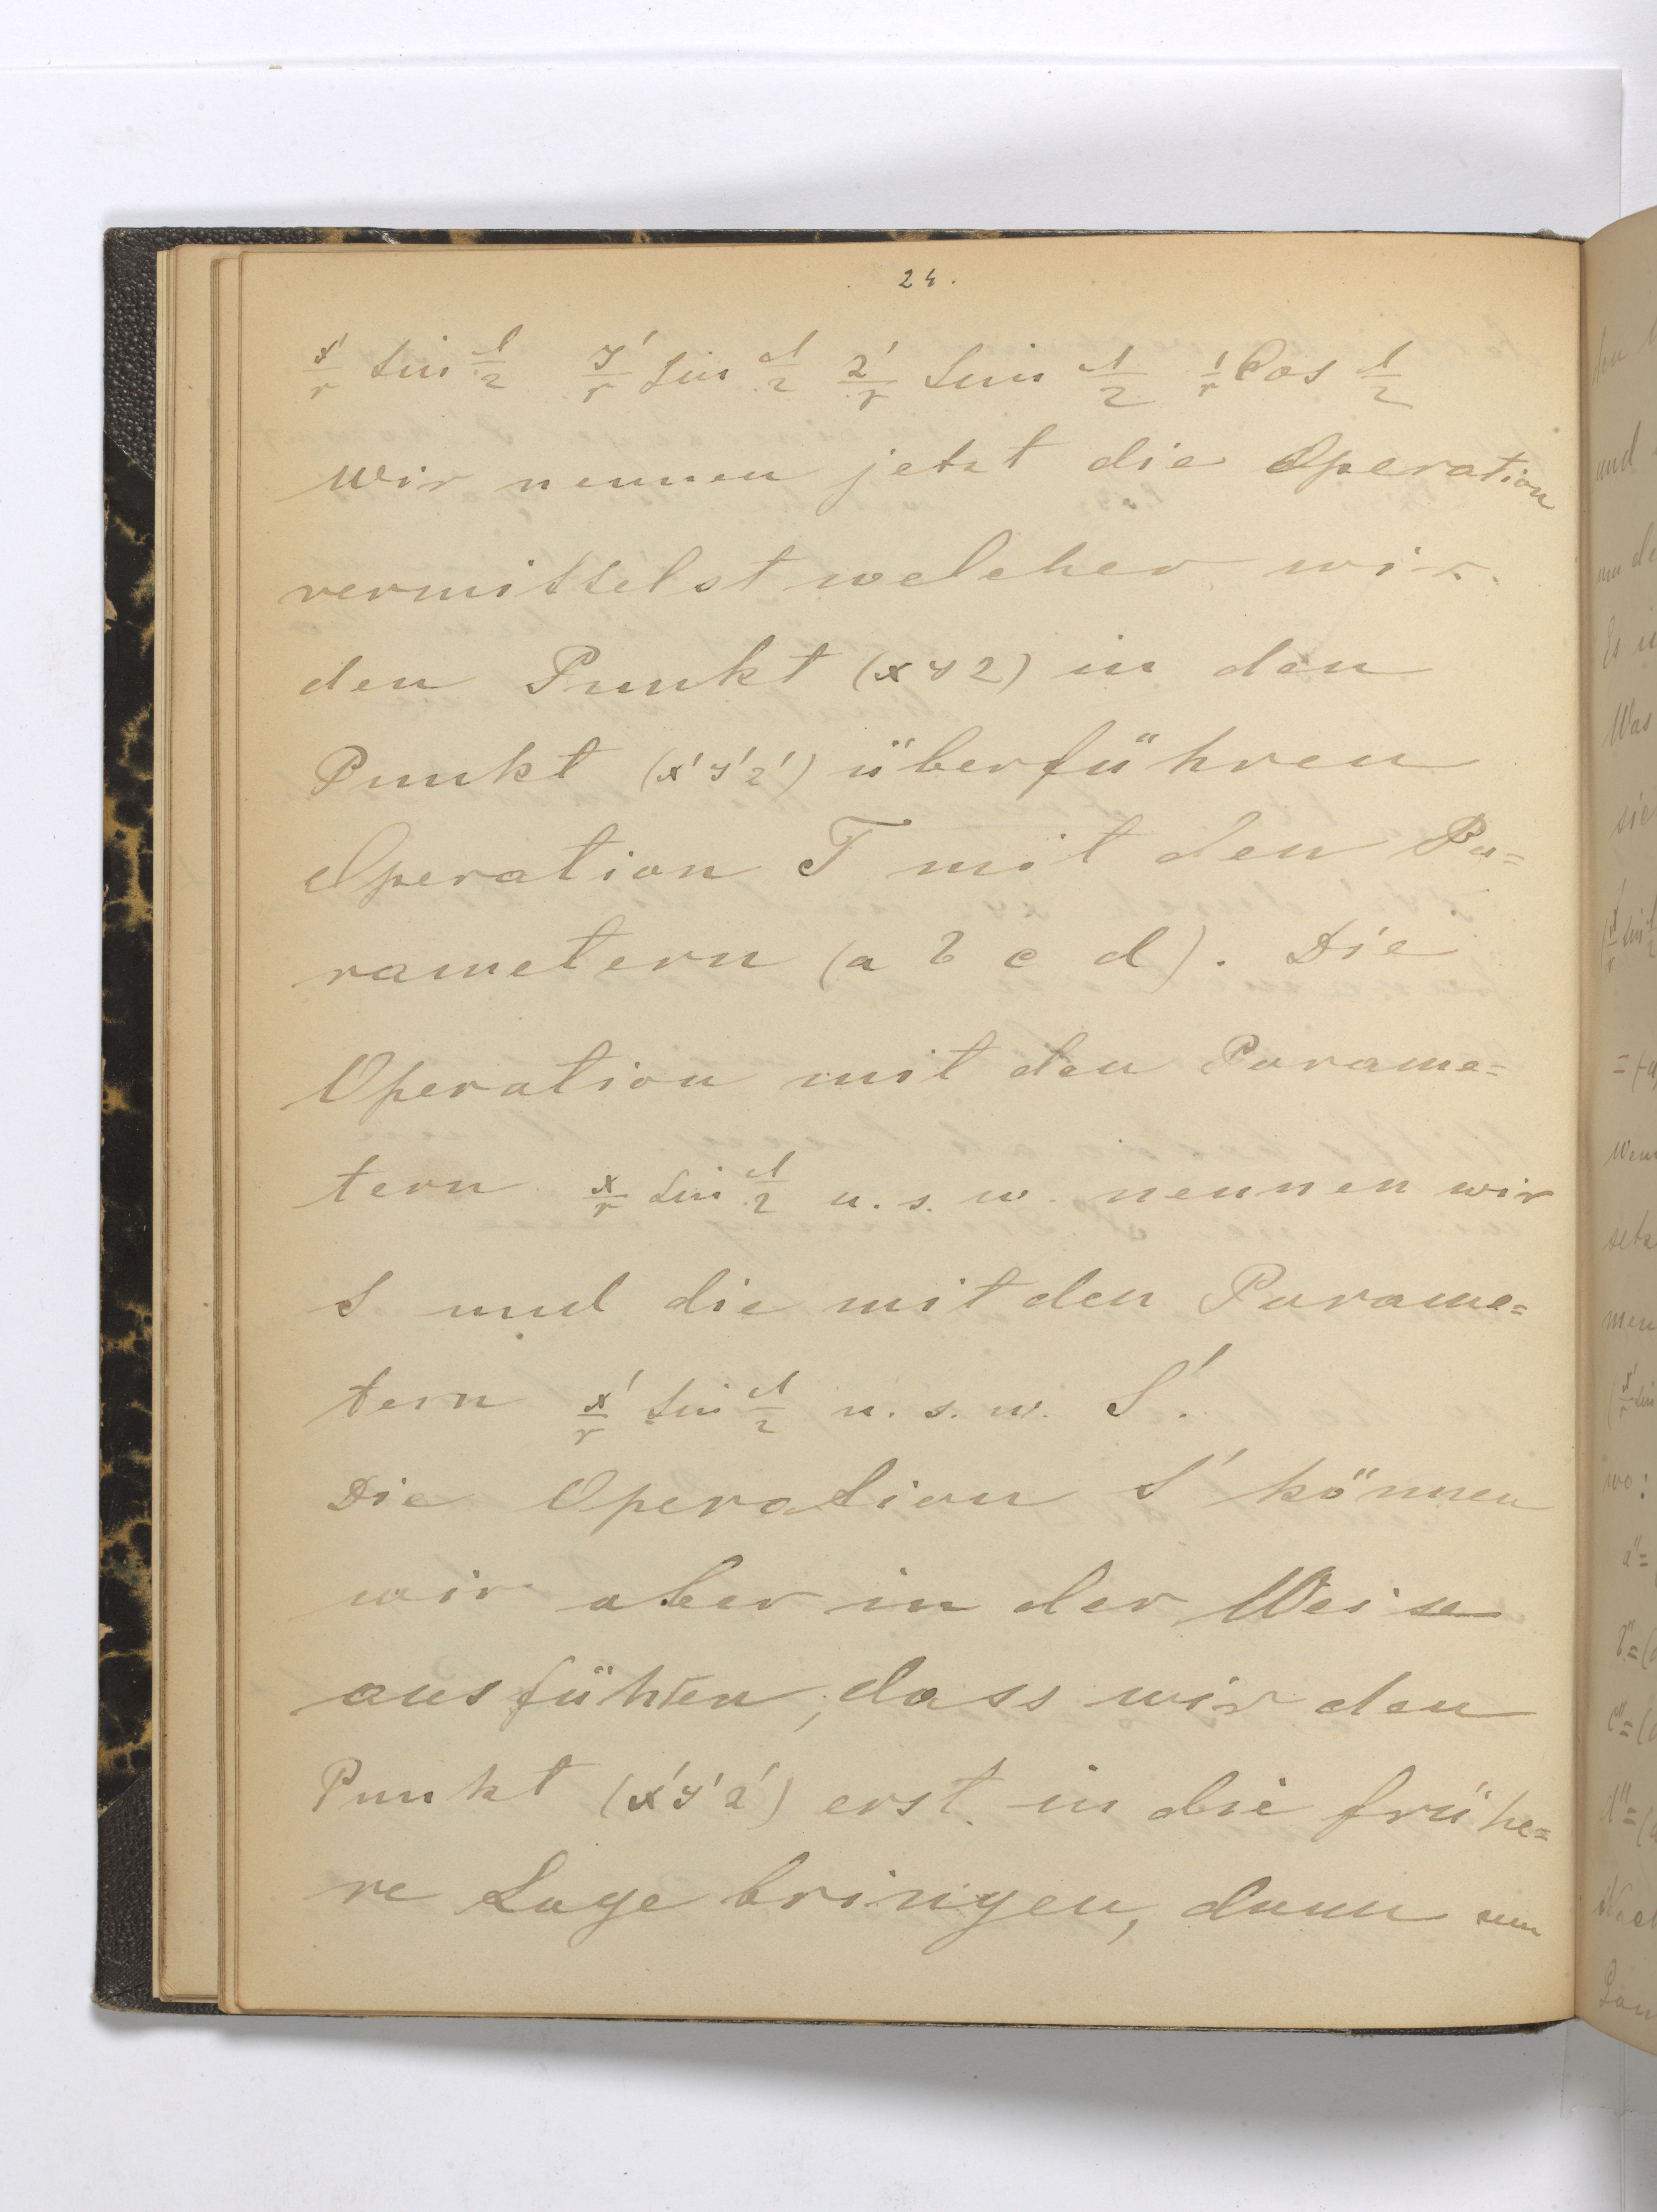 24.
x'/r sin d/2 y'/r sin d/2 z'/r sin d/2 1/r Cos d/2
Wir nennen jetzt die Operation
vermittelst welcher wir
den Punkt (x y z) in den
Punkt (x' y' z') überführen
Operation T mit den Pa=
rametern (a b c d). Die
Operation mit den Parame=
tern x/r sin d/2 u. s. w. nennen wir
S und die mit den Parame=
tern x'/r sin d/2 u. s. w. S'.
Die Operation S' können
wir aber in der Weise
ausführen, dass wir den
Punkt (x' y' z') erst in die frühe=
re Lage bringen, dann um